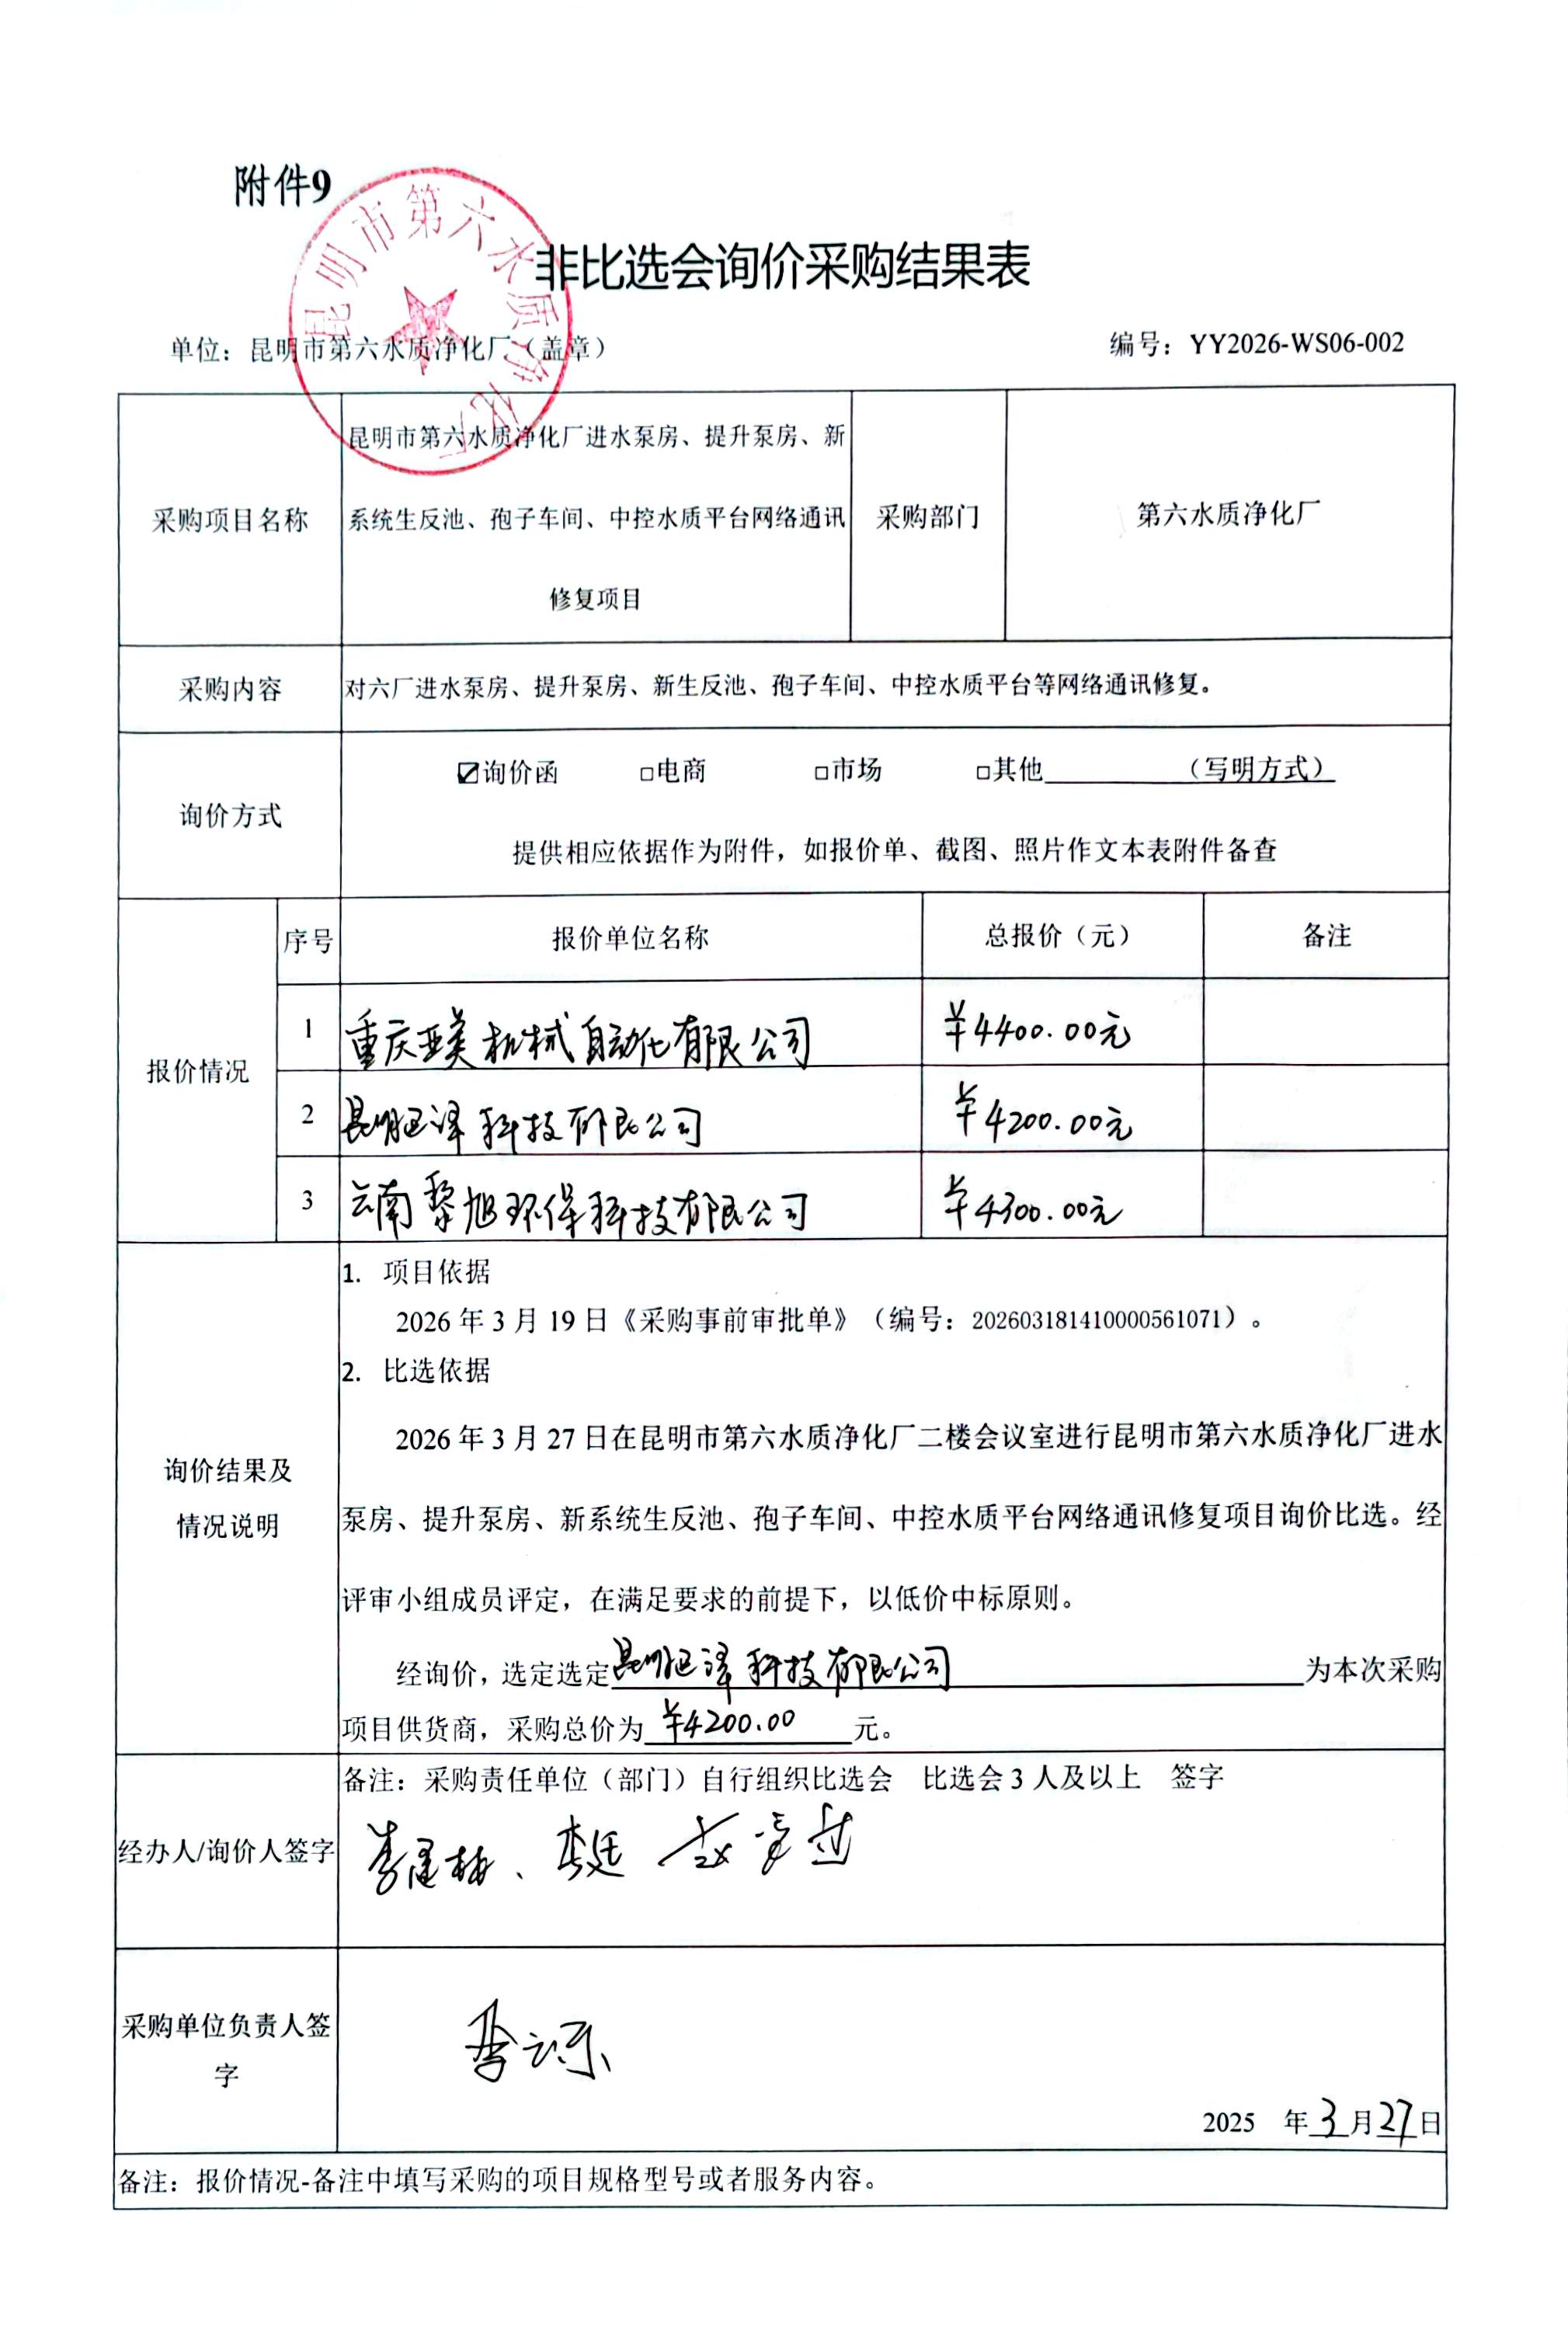 附件9
昆明市第六水质净化厂
非比选会询价采购结果表
单位：昆明市第六水质净化厂（盖章）
编号：YY2026-WS06-002
采购项目名称
昆明市第六水质净化厂进水泵房、提升泵房、新
系统生反池、孢子车间、中控水质平台网络通讯
修复项目
采购部门
第六水质净化厂
采购内容
对六厂进水泵房、提升泵房、新生反池、孢子车间、中控水质平台等网络通讯修复。
询价方式
☑询价函 □电商 □市场 □其他（写明方式）
提供相应依据作为附件，如报价单、截图、照片作文本表附件备查
报价情况
序号 报价单位名称 总报价（元） 备注
1 重庆亚美机械自动化有限公司 ¥4400.00元
2 昆明 泽科技有限公司 ¥4200.00元
3 云南黎旭环保科技有限公司 ¥4300.00元
询价结果及
情况说明
1. 项目依据
2026年3月19日《采购事前审批单》（编号：202603181410000561071）。
2. 比选依据
2026年3月27日在昆明市第六水质净化厂二楼会议室进行昆明市第六水质净化厂进水
泵房、提升泵房、新系统生反池、孢子车间、中控水质平台网络通讯修复项目询价比选。经
评审小组成员评定，在满足要求的前提下，以低价中标原则。
经询价，选定选定昆明 泽科技有限公司为本次采购
项目供货商，采购总价为¥4200.00元。
经办人/询价人签字
备注：采购责任单位（部门）自行组织比选会 比选会3人及以上 签字
采购单位负责人签
字
2025 年3月27日
备注：报价情况-备注中填写采购的项目规格型号或者服务内容。